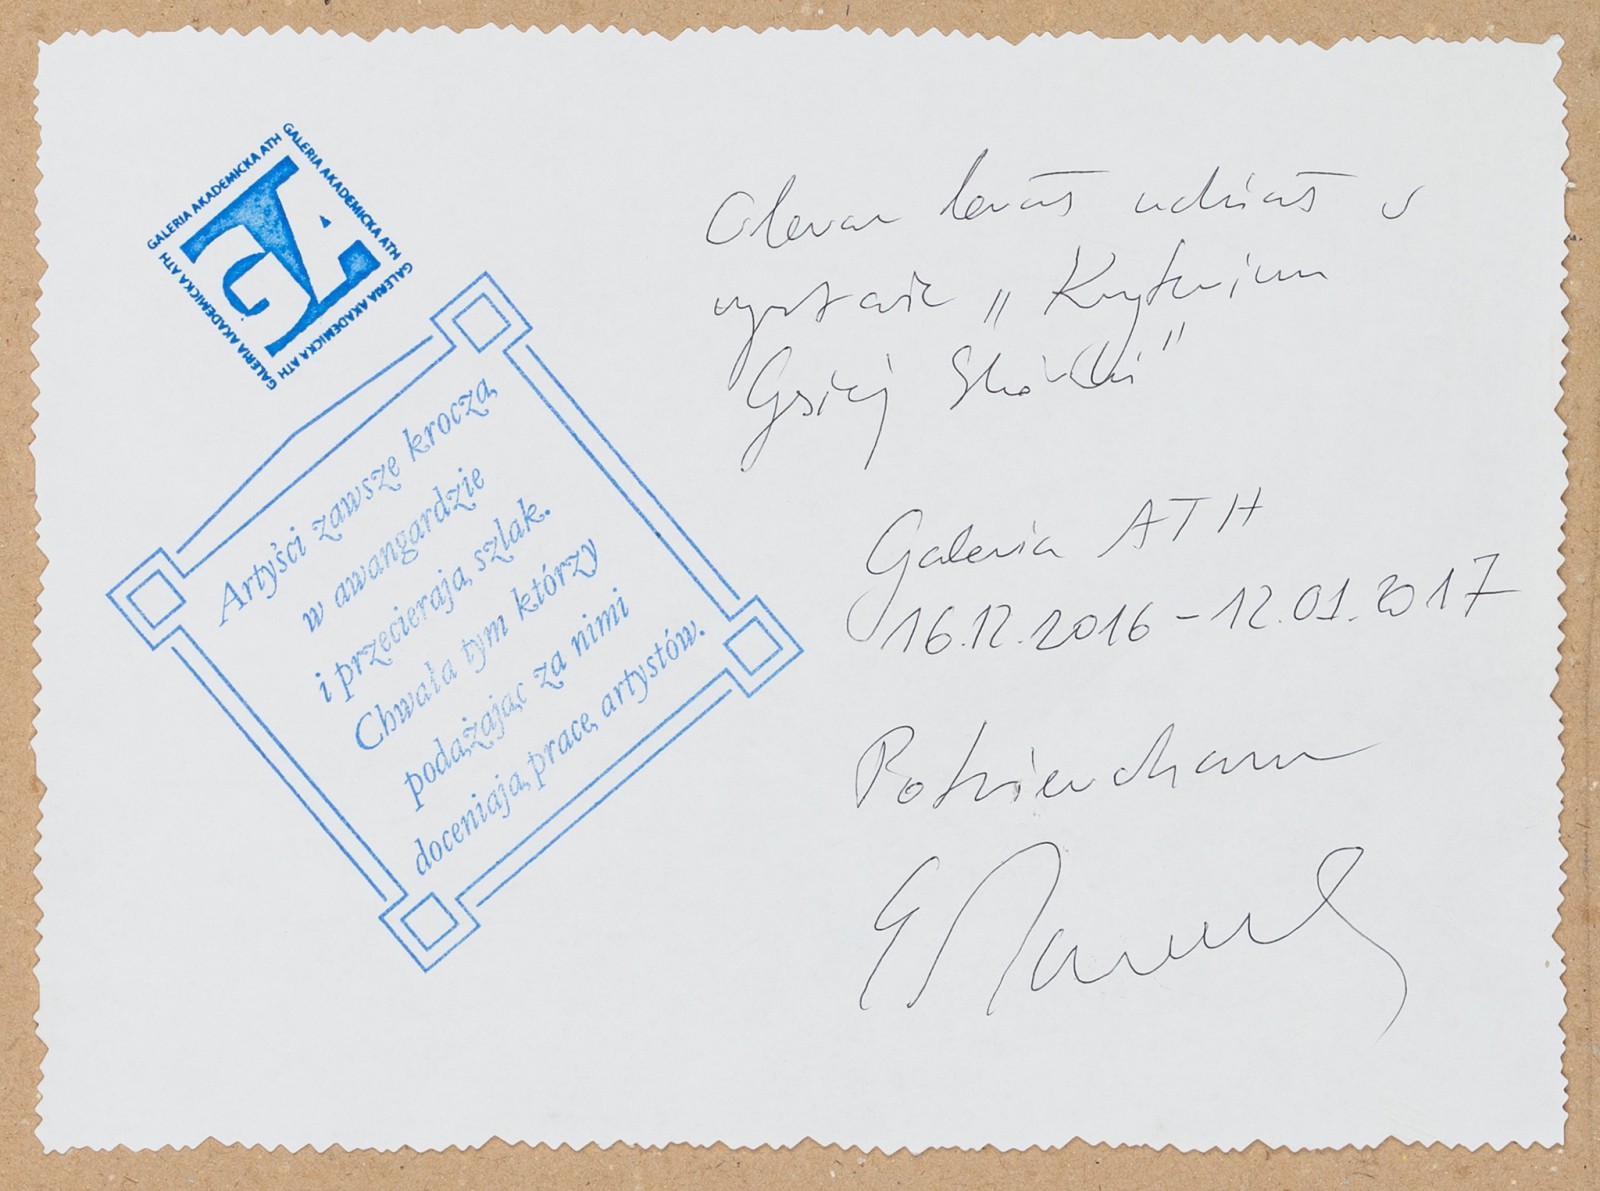 GALERIA AKADEMICKA ATH
GALERIA AKADEMICKA ATH
GALERIA AKADEMICKA ATH
GALERIA AKADEMICKA ATH
Artyści zawsze kroczą
w awangardzie
i przecierają szlak.
Chwała tym którzy
podążając za nimi
doceniają pracę artystów.
Obraz brał udział w
wystawie „Kryterium
Gęsiej Skórki”
Galeria ATH
16.12.2016 – 12.01.2017
Potwierdzam